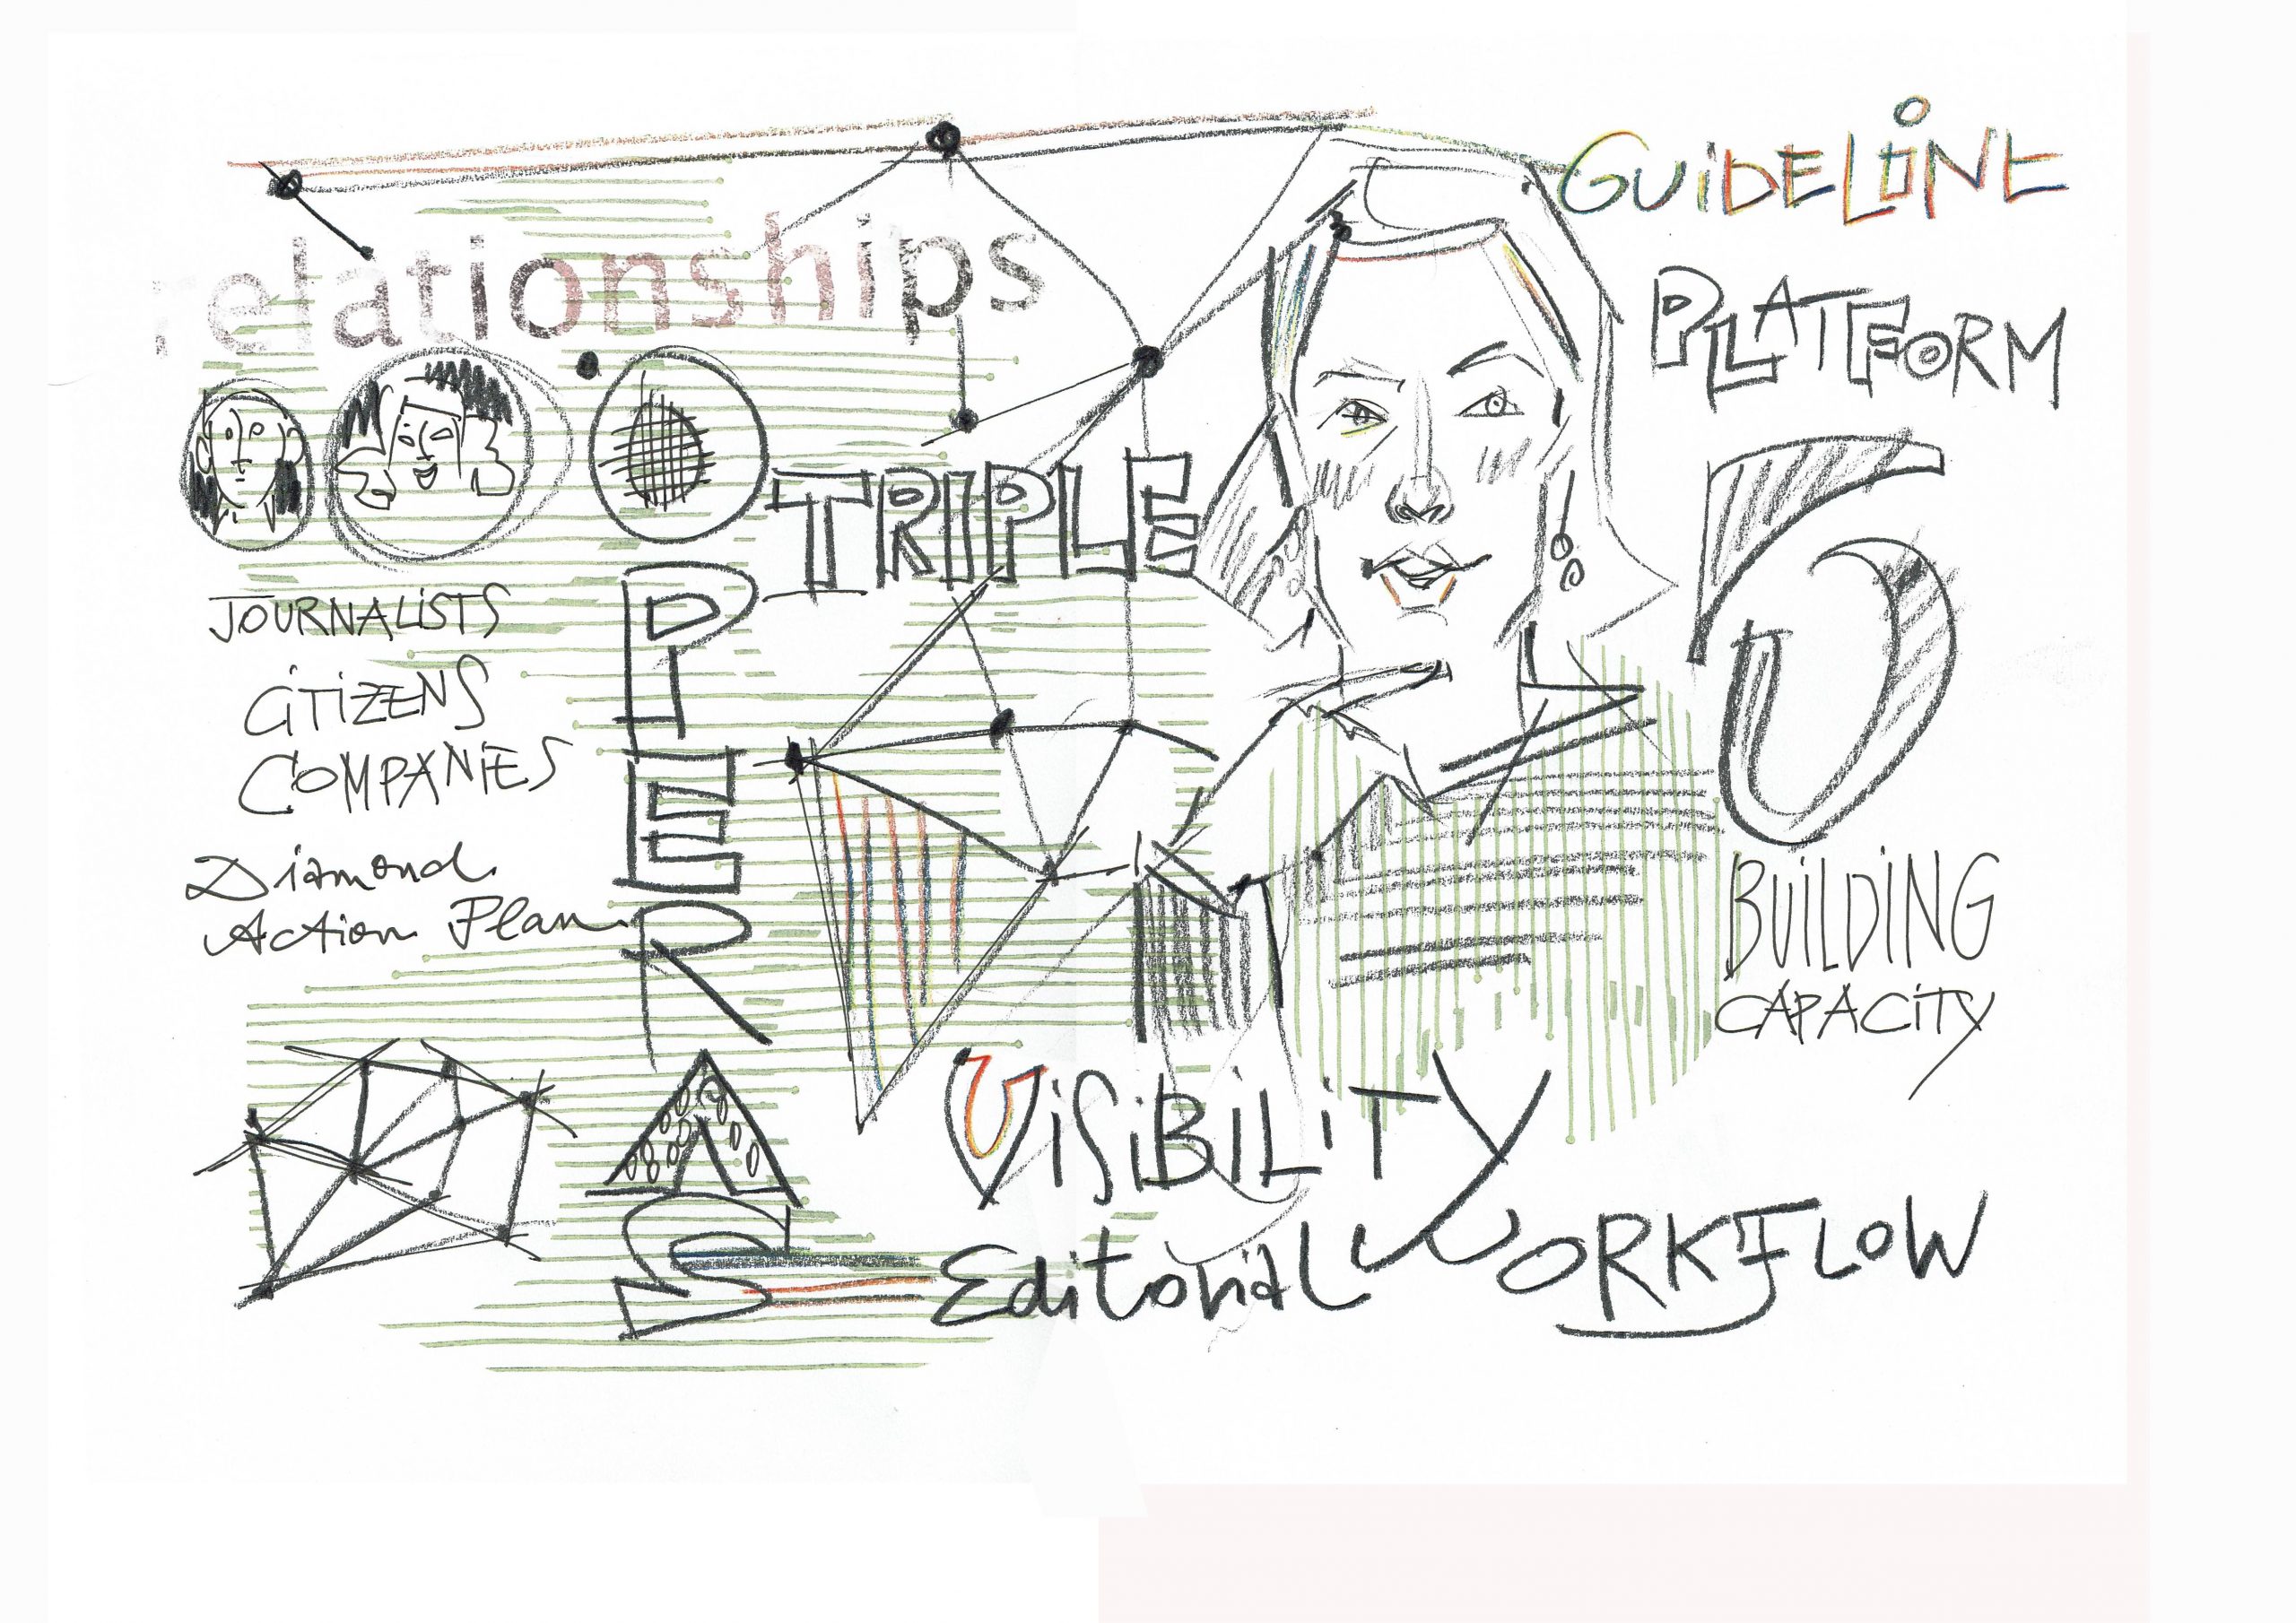 GUiDELiNE
relationships
PLATFORM
OPERAS
TRIPLE
5
JOURNALiSTS
CiTiZENS
COMPANiES
Diamond
Action Plan
BUiLDiNG
CAPACiTY
ViSiBiLiTY
Editorial WORKFLOW